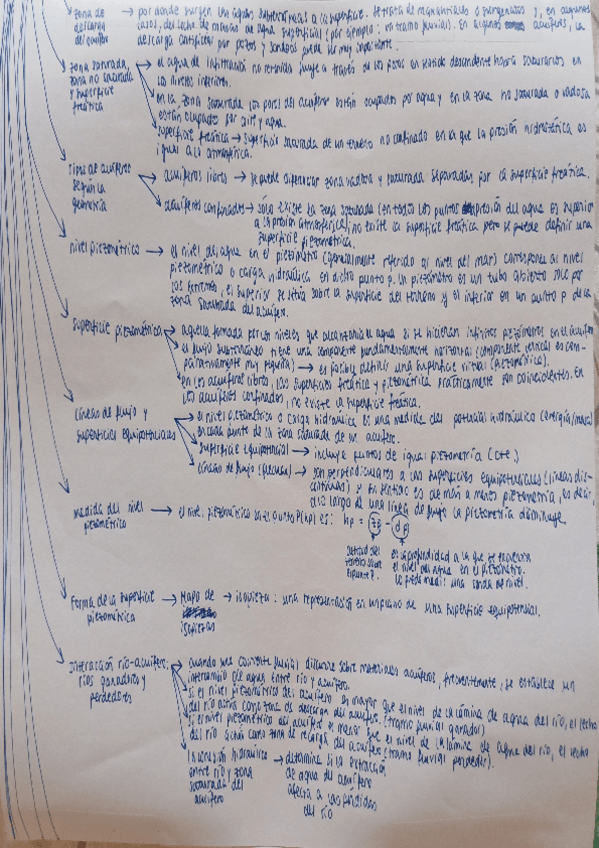 zona de → por donde surgen las aguas subterráneas a la superficie. Se trata de manantiales o surgencias y, en algunos
descarga casos, del lecho de masas de agua superficial (por ejemplo: un tramo fluvial). En algunos acuíferos, la
del acuífero descarga artificial por pozos y sondeos puede ser muy importante.
zona saturada, → el agua de infiltración no retenida fluye a través de los poros en sentido descendente hasta saturarlos en
zona no saturada los niveles inferiores.
y superficie → en la zona saturada los poros del acuífero están ocupados por agua y en la zona no saturada o vadosa
freática están ocupados por aire y agua.
superficie freática → superficie saturada de un terreno no confinado en la que la presión hidrostática es
igual a la atmosférica.
Tipos de acuíferos → acuíferos libres → se puede diferenciar zona vadosa y saturada separadas por la superficie freática.
según la
geometría → acuíferos confinados → sólo existe la zona saturada (en todos los puntos presión del agua es superior
a la presión atmosférica), no existe la superficie freática pero se puede definir una
superficie piezométrica.
nivel piezométrico → el nivel del agua en el piezómetro (generalmente referido al nivel del mar) corresponde al nivel
piezométrico o carga hidráulica en dicho punto P. Un piezómetro es un tubo abierto solo por
los extremos, el superior se sitúa sobre la superficie del terreno y el inferior en un punto P de la
zona saturada del acuífero.
superficie piezométrica → aquella formada por los niveles que alcanzaría el agua si se hicieran infinitos piezómetros en el acuífero
→ el flujo subterráneo tiene una componente fundamentalmente horizontal (componente vertical es com-
parativamente muy pequeña) → es posible definir una superficie virtual (piezométrica).
→ en los acuíferos libres, las superficies freática y piezométrica prácticamente son coincidentes. En
los acuíferos confinados, no existe la superficie freática.
líneas de flujo y → el nivel piezométrico o carga hidráulica es una medida del potencial hidráulico (energía/masa)
superficies equipotenciales en cada punto de la zona saturada de un acuífero.
→ superficie equipotencial → incluye puntos de igual piezometría (cte.)
→ líneas de flujo (flechas) → son perpendiculares a las superficies equipotenciales (líneas dis-
continuas) y su sentido es de más a menos piezometría, es decir,
a lo largo de una línea de flujo la piezometría disminuye.
medida del nivel → el nivel piezométrico en el punto P (hp) es: hp = zp - dp
piezométrico
altitud del
terreno sobre
el punto P.
es la profundidad a la que se encuentra
el nivel del agua en el piezómetro.
lo puede medir una sonda de nivel.
Forma de la superficie → Mapa de → isopieza: una representación en un plano de una superficie equipotencial.
piezométrica isopiezas
Interacción río-acuífero: → cuando una corriente fluvial discurre sobre materiales acuíferos, frecuentemente, se establece un
ríos ganadores y intercambio de agua entre río y acuífero.
perdedores → si el nivel piezométrico del acuífero es mayor que el nivel de la lámina de agua del río, el lecho
del río actúa como zona de descarga del acuífero. (tramo fluvial ganador)
→ si el nivel piezométrico del acuífero es menor que el nivel de la lámina de agua del río, el lecho
del río actúa como zona de recarga del acuífero (tramo fluvial perdedor).
→ la conexión hidráulica → determina si la extracción
entre río y zona de agua del acuífero
saturada del afecta a las pérdidas
acuífero del río